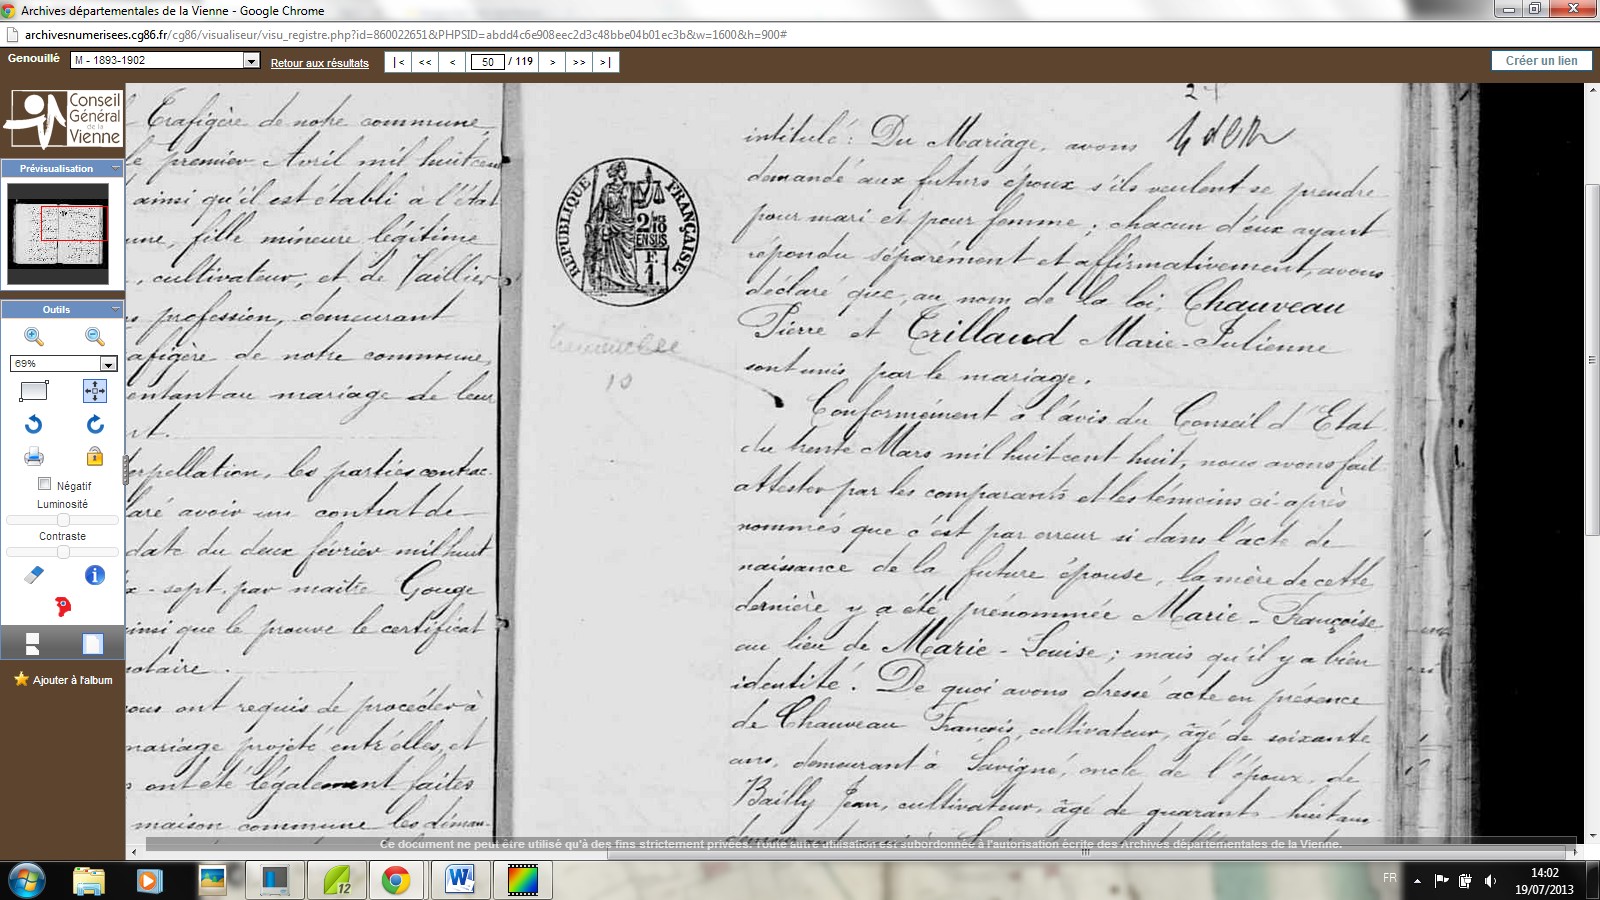 Archives départementales de la Vienne - Google Chrome
archivesnumerisees.cg86.fr/cg86/visualiseur/visu_registre.php?id=860022651&PHPSID=abdd4c6e908eec2d3c48bbe04b01ec3b&w=1600&h=900#
Genouillé
M - 1893-1902
Retour aux résultats
|< << < 50 / 119 > >> >|
Créer un lien
Conseil
Général
de la
Vienne
Prévisualisation
Outils
69%
Négatif
Luminosité
Contraste
Ajouter à l'album
Trafigère de notre commune,
le premier Avril mil huit cent
ainsi qu'il est établi à l'état
une, fille mineure légitime
, cultivateur, et de Vaillier
profession, demeurant
afigère de notre commune,
entant au mariage de leur
nt.
erpellation, les parties contrac-
laré avoir un contrat de
date du deux février mil huit
x-sept, par maître Gouge
ainsi que le prouve le certificat
notaire.
ous ont requis de procéder à
mariage projeté entr'elles, et
ont été légalement faites
maison commune les diman-
RÉPUBLIQUE FRANÇAISE
2 10
EN SUS
intitulé : Du Mariage, avons
demandé aux futurs époux s'ils veulent se prendre
pour mari et pour femme ; chacun d'eux ayant
répondu séparément et affirmativement, avons
déclaré que, au nom de la loi, Chauveau
Pierre et Trillaud Marie-Julienne
sont unis par le mariage.
Conformément à l'avis du Conseil d'Etat
du trente Mars mil huit cent huit, nous avons fait
attester par les comparants et les témoins ci-après
nommés que c'est par erreur si dans l'acte de
naissance de la future épouse, la mère de cette
dernière y a été prénommée Marie-Françoise
au lieu de Marie-Louise ; mais qu'il y a bien
identité. De quoi avons dressé acte en présence
de Chauveau François, cultivateur, âgé de soixante
ans, demeurant à Savigné, oncle de l'époux, de
Bailly Jean, cultivateur, âgé de quarante huit ans
Ce document ne peut être utilisé qu'à des fins strictement privées. Toute autre utilisation est subordonnée à l'autorisation écrite des Archives départementales de la Vienne.
FR
14:02
19/07/2013